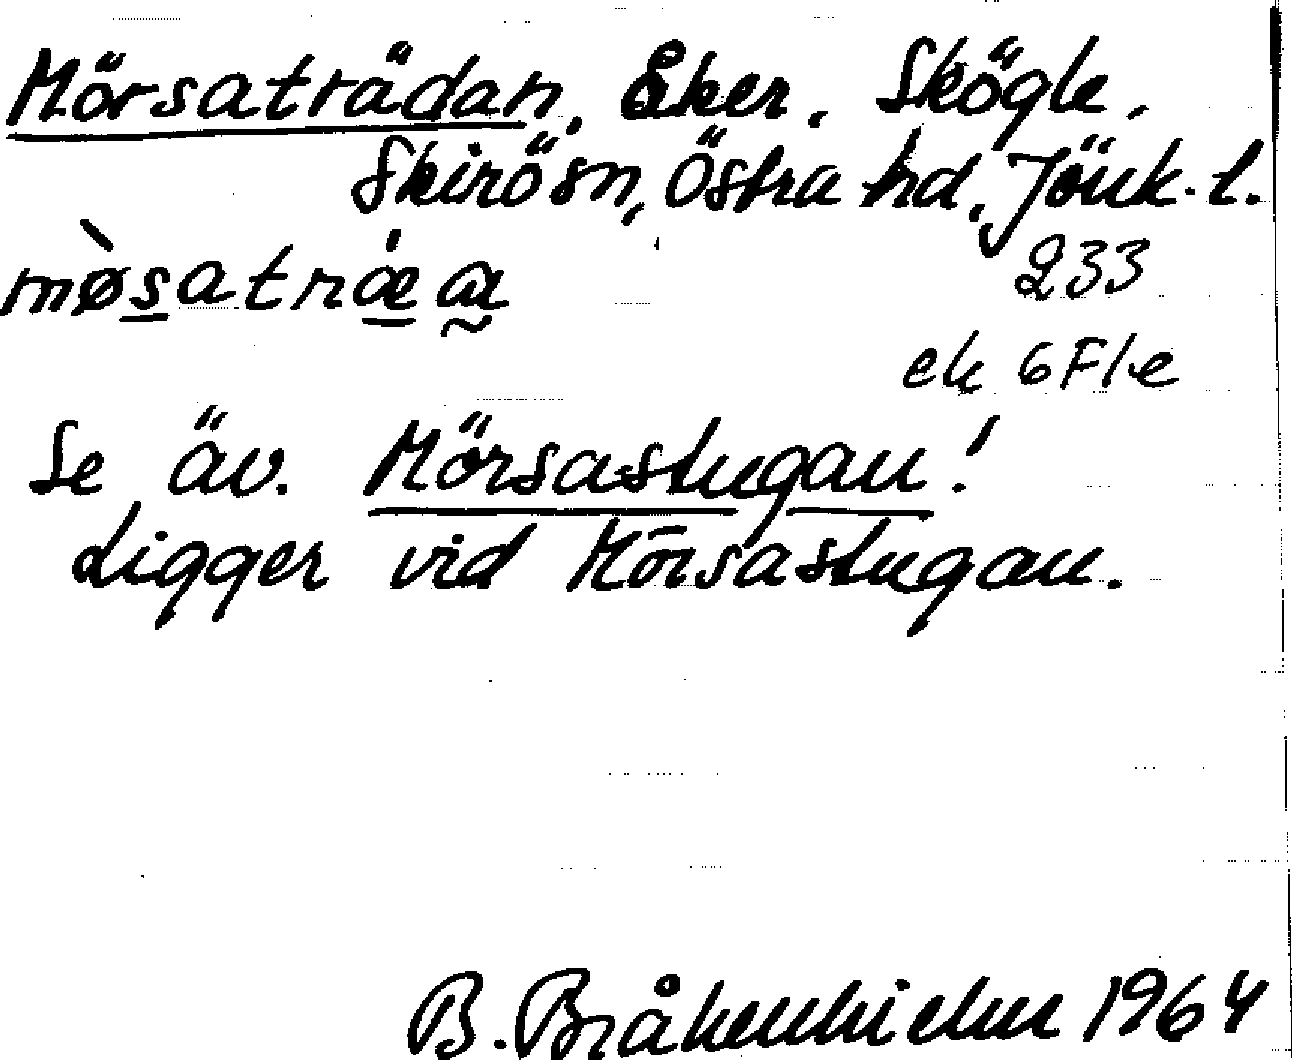 Mörsaträdan, Åker. Skögle,
Skirö sn, Östra hd, Jönk. l.
møsatræ
233
ek 6 F1e
Se äv. Mörsastugan!
Ligger vid Mörsastugan.
B. Bråkenhielm 1964